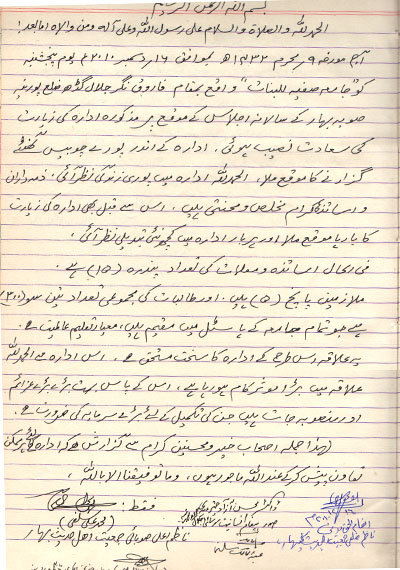 بسم اللہ الرحمن الرحیم
الحمدللہ والصلاۃ والسلام علی رسول اللہ وعلی آلہ ومن والاہ اما بعد!
آج مورخہ ۹ محرم ۱۴۳۲ھ بموافق ۱۶ دسمبر ۲۰۱۰م یوم پنجشنبہ
کو "جامعہ صفیہ للبنات" واقع بمقام فاروق نگر جلال گڈھ ضلع پورنیہ
صوبہ بہار کے سالانہ اجلاس کے موقع پر مذکورہ ادارہ کی زیارت
کی سعادت نصیب ہوئی۔ ادارہ کے اندر پورے چوبیس گھنٹے
گزارنے کا موقع ملا، الحمدللہ ادارہ میں پوری زندگی نظر آئی۔ ذمہ داران
و اساتذہ کرام مخلص و محنتی ہیں۔ اس سے قبل بھی ادارہ کی زیارت
کا بارہا موقع ملا اور ہر بار ادارہ میں کچھ نئی تبدیلی نظر آئی۔
فی الحال اساتذہ و معلمات کی تعداد پندرہ (۱۵) ہے۔
ملازمین پانچ (۵) ہیں۔ اور طالبات کی مجموعی تعداد تین سو (۳۰۰)
ہے جو تمام جامعہ کے ہاسٹل میں مقیم ہیں، معیار تعلیم عالمیت ہے۔
یہ علاقہ اس طرح کے ادارہ کا سخت مستحق ہے۔ اس ادارہ سے الحمدللہ
علاقہ میں بڑا موثر کام ہو رہا ہے، اس کے پاس بہت بڑے بڑے عزائم
اور منصوبہ جات ہیں جن کی تکمیل کے لئے بڑے سرمایہ کی ضرورت ہے۔
لہذا جملہ اصحاب خیر و محسنین کرام سے گزارش ہے کہ ادارہ کا ہر ممکن
تعاون پیش کر کے عنداللہ ماجور ہوں، وما توفیقنا الا باللہ،
فقط:
ناظم اعلی صوبائی جمعیت اہل حدیث بہار